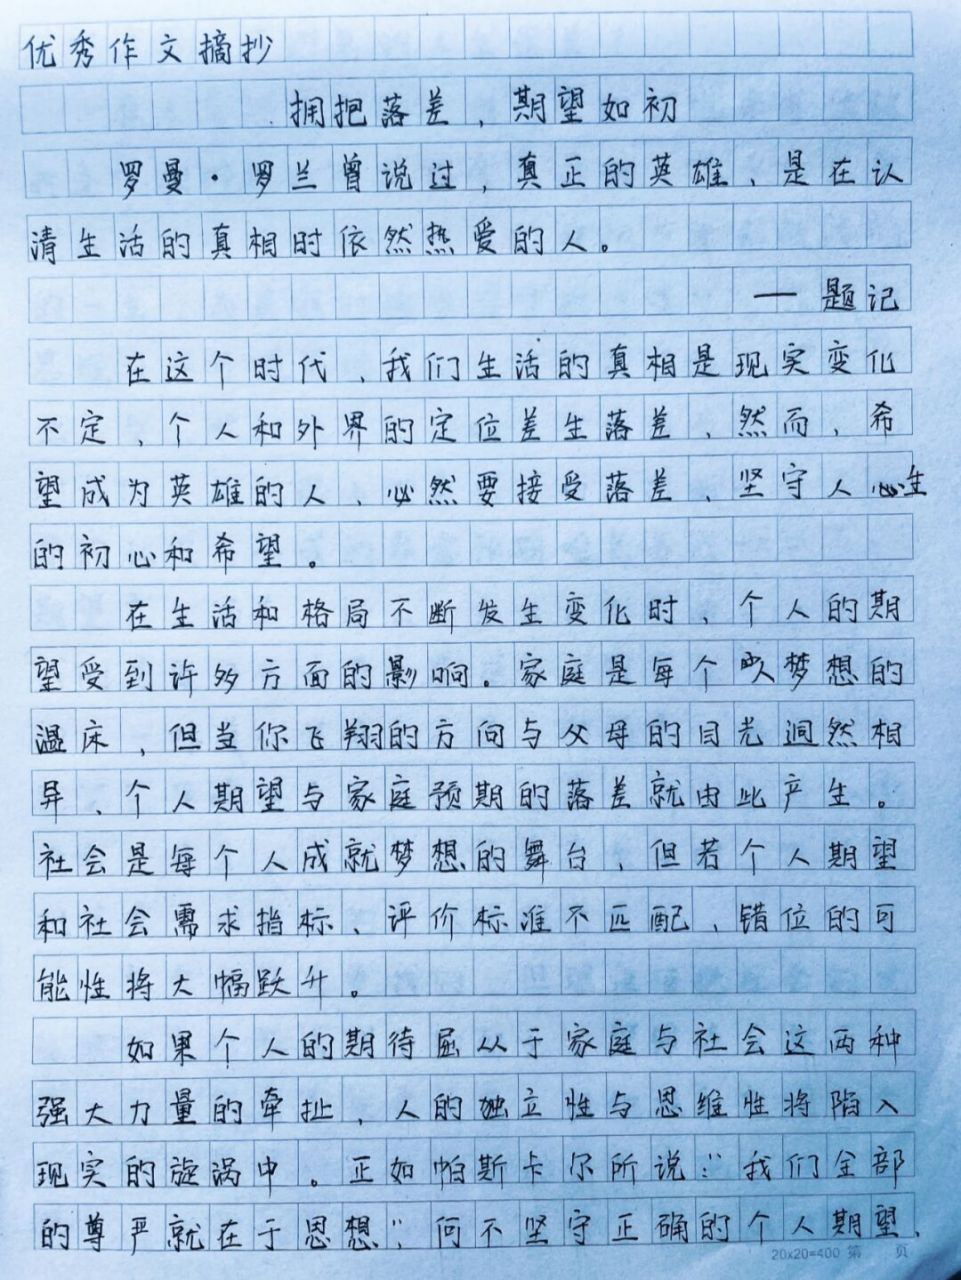 优秀作文摘抄
拥把落差，期望如初
罗曼·罗兰曾说过，真正的英雄、是在认
清生活的真相时依然热爱的人。
—题记
在这个时代、我们生活的真相是现实变化
不定、个人和外界的定位差生落差、然而，希
望成为英雄的人、必然要接受落差、坚守人心生
的初心和希望。
在生活和格局不断发生变化时、个人的期
望受到许多方面的影响。家庭是每个人梦想的
温床，但当你飞翔的方向与父母的目光迥然相
异、个人期望与家庭预期的落差就由此产生。
社会是每个人成就梦想的舞台、但若个人期望
和社会需求指标、评价标准不匹配、错位的可
能性将大幅跃升。
如果个人的期待屈从于家庭与社会这两种
强大力量的牵扯，人的独立性与思维性将陷入
现实的旋涡中。正如帕斯卡尔所说：“我们全部
的尊严就在于思想”，何不坚守正确的个人期望、
20x20=400 第 页